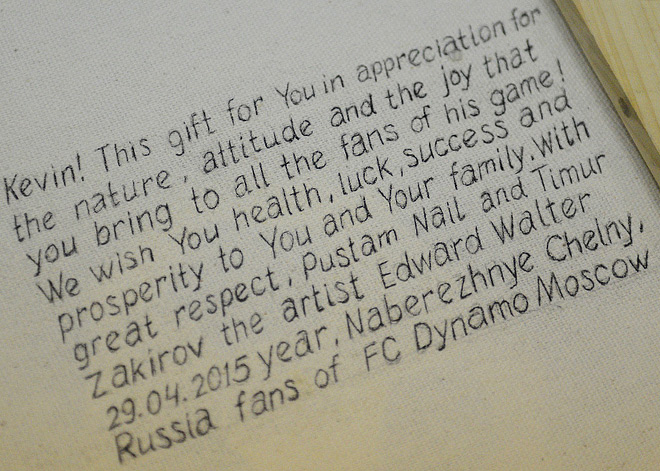 Kevin! This gift for You in appreciation for
the nature, attitude and the joy that
you bring to all the fans of his game!
We wish You health, luck, success and
prosperity to You and Your family. With
great respect, Rustam Nail and Timur
Zakirov the artist Edward Walter
29.04.2015 year, Naberezhnye Chelny,
Russia fans of FC Dynamo Moscow